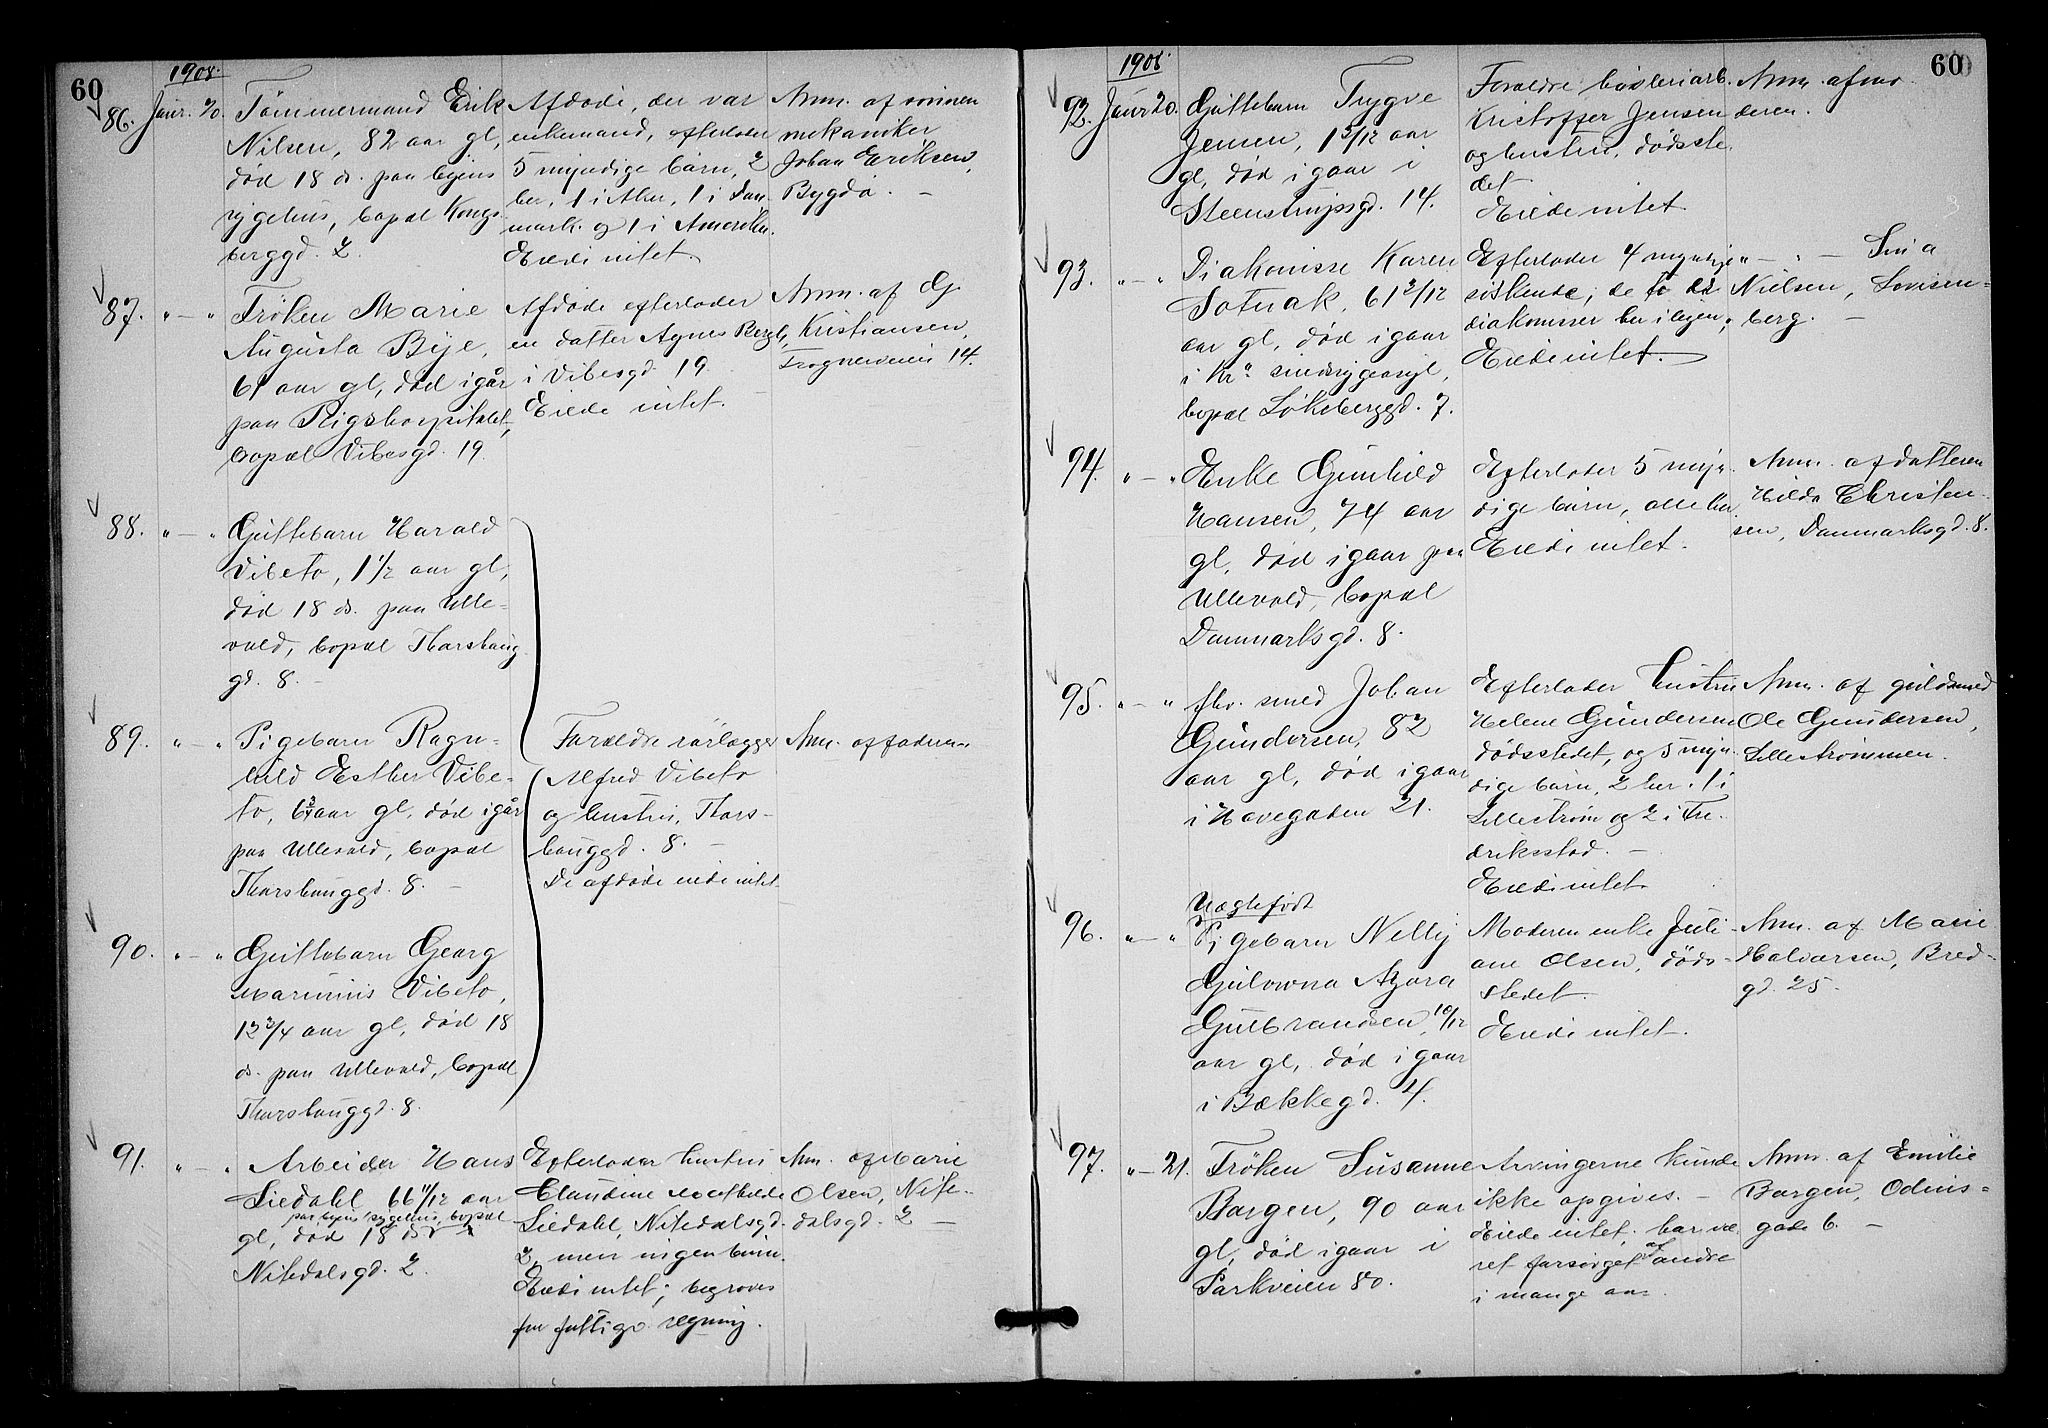 60
1908.
86. Janr. 20. Tömmermand Erik
Nilsen, 82 aar gl,
död 18 ds. paa byens
sygehus, bopæl Kongs-
berggd. 2.
Afdöde, der var
enkemand, efterlader
5 myndige börn, 2
her, 1 i Aker, 1 i Dan-
mark og 1 i Amerika.
Eiede intet.
Anm. af sönnen
mekaniker
Johan Eriksen,
Bygdö. -
87. " - " Fröken Marie
Augusta Bye,
61 aar gl, död igår
paa Rigshospitalet,
bopæl Vibesgd. 19.
Afdöde efterlader
en datter Agnes Bergh,
i Vibesgd. 19.
Eiede intet.
Anm. af G.
Kristiansen,
Frognerveien 14.
88. " - " Guttebarn Harald
Vibeto, 1 1/2 aar gl,
död 18 ds. paa Ulle-
vold, bopæl Thorshaug-
gd. 8. -
89. " - " Pigebarn Ragn-
hild Esther Vibe-
to, 6 3/4 aar gl, död igår
paa Ullevold, bopæl
Thorshauggd. 8. -
Forældre rörlægger
Alfred Vibeto
og hustru, Thors-
hauggd. 8. -
De afdöde eiede intet.
Anm. af faderen
90. " - " Guttebarn Georg
Marinius Vibeto,
12 3/4 aar gl, död 18
ds. paa Ullevold, bopæl
Thorshauggd. 8.
91. " - " Arbeider Hans
Liedahl 66 11/12 aar
paa byens sygehus, bopæl
gl, död 18 ds
Nitedalsgd. 2.
Efterlader hustru
Claudine
Liedahl, Nitedalsgd.
2, men ingen börn.
Eiede intet; begraves
for fattigv. regning.
Anm. af Marie
Olsen, Nite-
dalsgd. 2 -
60
1908.
92. Janr 20. Guttebarn Trygve
Jensen, 1 3/12 aar
gl, död igaar i
Steenstrupsgd. 14.
Forældre hövleriarb.
Kristoffer Jensen
og hustru, dödsste-
det
Eiede intet
Anm. af mo-
deren.
93. " - " Diakonisse Karen
Sotnak, 61 2/12
aar gl, död igaar
i Kra sindssygeasyl,
bopæl Lökeberggd. 7.
Efterlader 4 myndige
söskende, de to er
diakonisser her i byen;
Eiede intet.
" - " - Sina
Nielsen, Lovisen-
berg. -
94. " - " Enke Gunhild
Hansen, 74 aar
gl, död igaar paa
Ullevold, bopæl
Danmarksgd. 8.
Efterlader 5 myn-
dige börn, alle her
Eiede intet.
Anm. af datteren
Hilda Christen-
sen, Danmarksgd. 8.
95. " - " fhv. smed Johan
Gundersen, 82
aar gl, död igaar
i Havegaden 21.
Efterlader hustru
Helene Gundersen
dödsstedet, og 5 myn-
dige börn, 2 her, 1 i
Lilleström og 2 i Fre-
driksstad. -
Eiede intet
Anm. af guldsmed
Ole Gundersen,
Lilleströmmen.
96. " - " Uægtefödt
Pigebarn Nelly
Gulovna Azora
Gulbrandsen, 10/12
aar gl, död igaar
i Bækkegd. 4.
Moderen enke Juli-
ane Olsen, döds-
stedet.
Eiede intet.
Anm. af Marie
Halvorsen, Bred-
gd. 25.
97. " - 21. Fröken Susanne
Borgen, 90 aar
gl, död igaar i
Parkveien 80.
Arvingerne kunde
ikke opgives. -
Eiede intet, har væ-
ret forsörget af andre
i mange aar.
Anm. af Emilie
Borgen, Odins-
gade 6. -